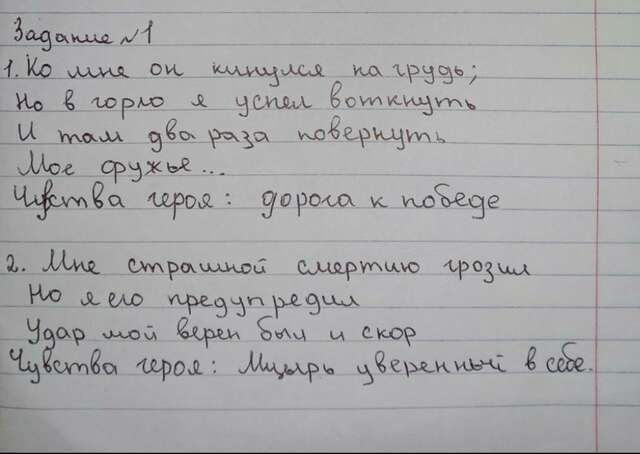 Задание №1
1. Ко мне он кинулся на грудь;
Но в горло я успел воткнуть
И там два раза повернуть
Мое оружье...
Чувства героя: дорога к победе
2. Мне страшной смертию грозил
Но я его предупредил
Удар мой верен был и скор
Чувства героя: Мцырь уверенный в себе.